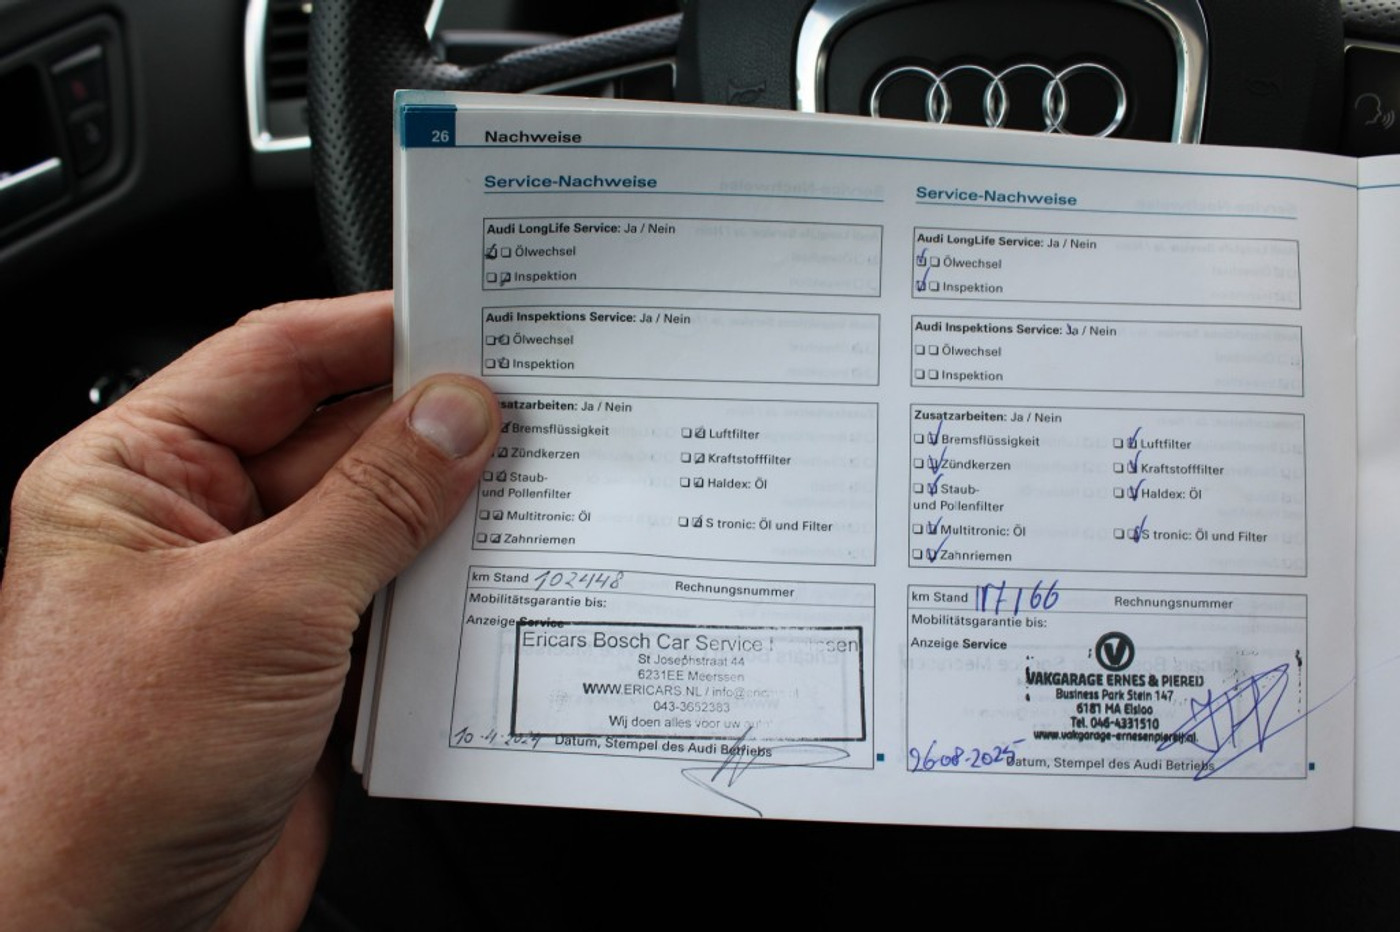 26 Nachweise
Service-Nachweise
Audi LongLife Service: Ja / Nein
Ölwechsel
Inspektion
Audi Inspektions Service: Ja / Nein
Ölwechsel
Inspektion
satzarbeiten: Ja / Nein
Bremsflüssigkeit
Luftfilter
Zündkerzen
Kraftstofffilter
Staub-
und Pollenfilter
Haldex: Öl
Multitronic: Öl
S tronic: Öl und Filter
Zahnriemen
km Stand 102448 Rechnungsnummer
Mobilitätsgarantie bis:
Anzeige Service
Ericars Bosch Car Service
St Josephstraat 44
6231EE Meerssen
WWW.ERICARS.NL / info@
043-3652383
Wij doen alles voor uw
10-4-2024 Datum, Stempel des Audi Betriebs
Service-Nachweise
Audi LongLife Service: Ja / Nein
Ölwechsel
Inspektion
Audi Inspektions Service: Ja / Nein
Ölwechsel
Inspektion
Zusatzarbeiten: Ja / Nein
Bremsflüssigkeit
Luftfilter
Zündkerzen
Kraftstofffilter
Staub-
und Pollenfilter
Haldex: Öl
Multitronic: Öl
S tronic: Öl und Filter
Zahnriemen
km Stand 117166 Rechnungsnummer
Mobilitätsgarantie bis:
Anzeige Service
V
VAKGARAGE ERNES & PIEREIJ
Business Park Stein 147
6181 MA Elsloo
Tel. 046-4331510
www.vakgarage-ernesenpiereij.nl
26-08-2025 Datum, Stempel des Audi Betriebs